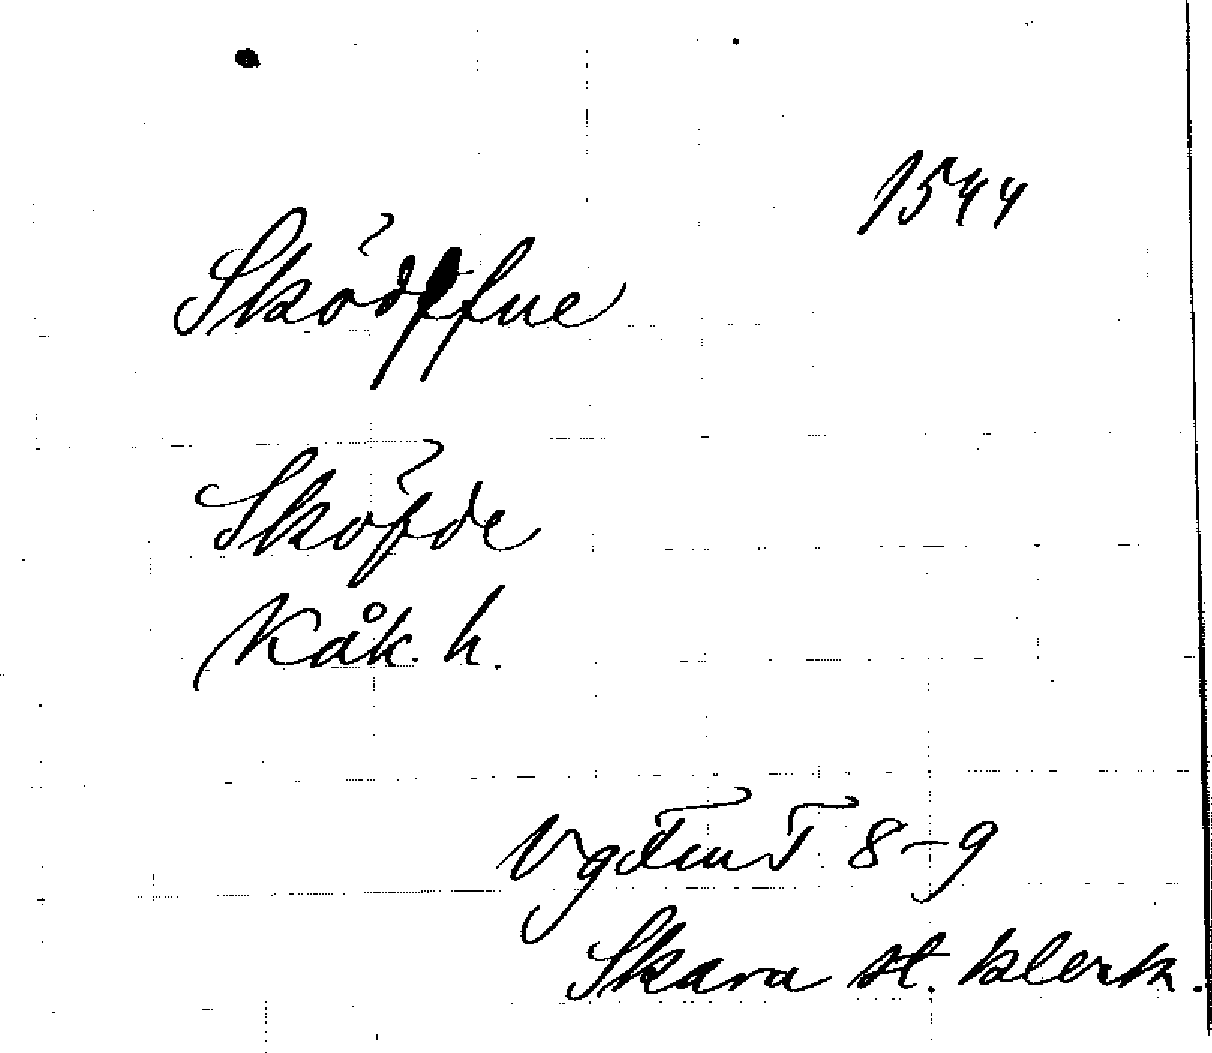 1544
Sködffue
Sköfde
Kåk. h.
Vg Tiu T 8-9
Skara st. klerk.